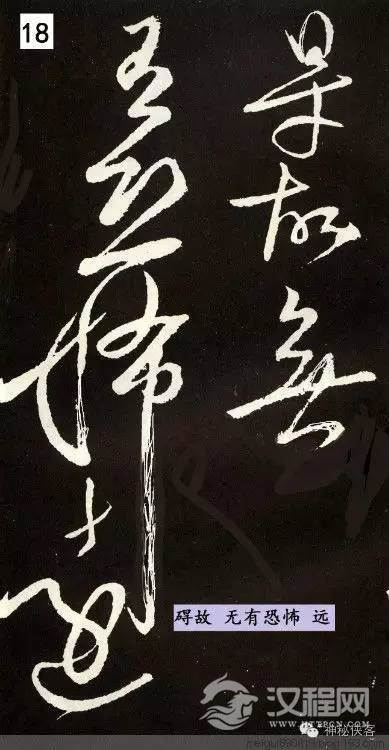 18
㝵故無
有恐怖遠
碍故 无有恐怖 远
汉程网
HTTPCN.COM
神秘侠客